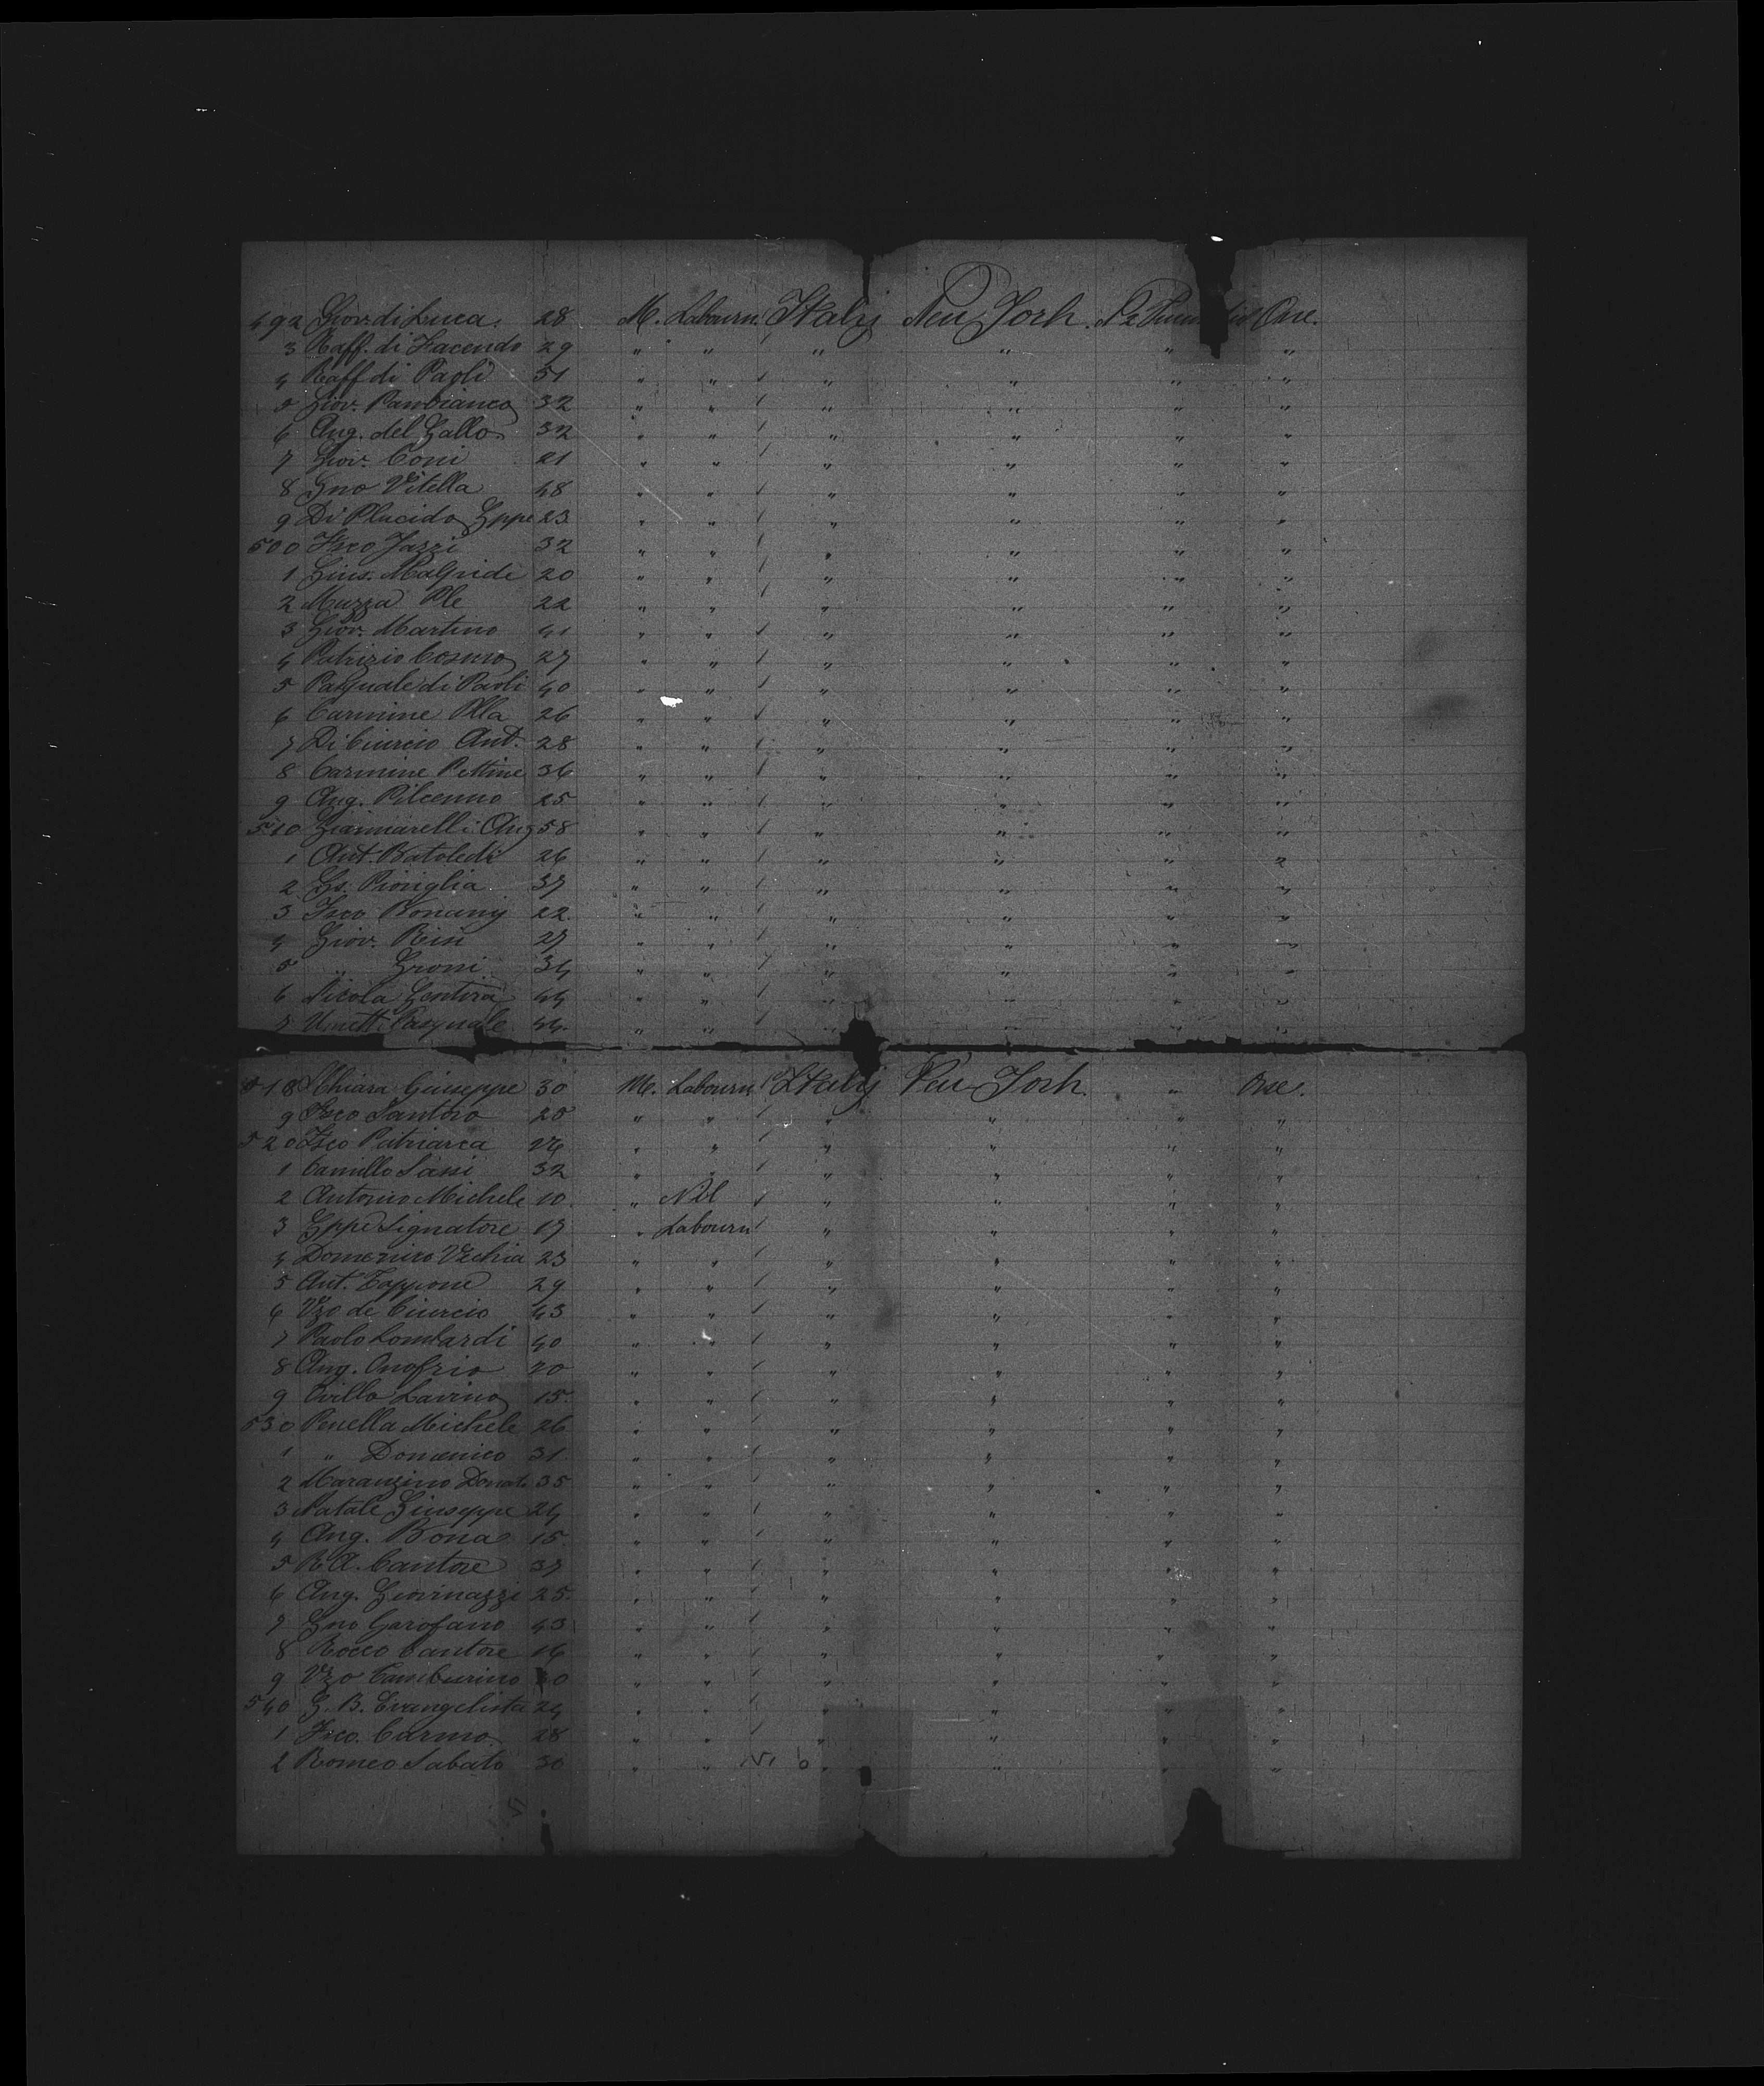 492 Giov. di Luca. 28 M. Labourn. Italy New York. One.
3 Raff. di Facendo 29 " " " " " "
4 Raff di Paoli 51 " " " " " "
5 Giov. Panbianco 32 " " " " " "
6 Ang. del Gallo 32 " " " " " "
7 Giov. Coni 21 " " " " " "
8 Gno Vitella 48 " " " " " "
9 Di Placido Gppe 23 " " " " " "
500 Fsco Jazzi 32 " " " " " "
1 Gius. 20 " " " " " "
2 Muzza Ple 22 " " " " " "
3 Giov. Martino 41 " " " " " "
4 Patrizio Cosmo 27 " " " " " "
5 Pasquale di Paoli 40 " " " " " "
6 Carmine Plla 26 " " " " " "
7 Di Ciurcio Ant. 28 " " " " " "
8 Carmine Pettine 36 " " " " " "
9 Ang. 25 " " " " " "
510 Giannarelli Ang 58 " " " " " "
1 Ant. Batoledi 26 " " " " " "
2 Gs. 37 " " " " " "
3 Fsco Bonany 22 " " " " " "
4 Giov. 27 " " " " " "
5 " Groni 34 " " " " " "
6 Nicola Gentira 44 " " " " " "
7 Pasquale 44. " " " " " "
518 Chiara Giuseppe 30 M. Labourn Italy New York. " One.
9 Fsco Santoro 20 " " " " " "
520 Fsco Patriarca 26 " " " " " "
1 Camillo Sassi 32 " " " " " "
2 Antonio Michele 10 " Nil " " " "
3 Gppe Signatore 17 " Labourn " " " "
4 Domenico Vechia 23 " " " " " "
5 Ant. Zappone 29 " " " " " "
6 Vzo de Ciurcio 43 " " " " " "
7 Paolo Lombardi 40 " " " " " "
8 Ang. Onofrio 20 " " " " " "
9 Cirillo Lavino 15 " " " " " "
530 Penella Michele 26 " " " " " "
1 " Domenico 31 " " " " " "
2 Maranzino Donato 35 " " " " " "
3 Natale Giuseppe 24 " " " " " "
4 Ang. Bona 15 " " " " " "
5 R A. Cantore 37 " " " " " "
6 Ang. Giovinazzi 25 " " " " " "
7 Gno Garofano 43 " " " " " "
8 Rocco Cantore 16 " " " " " "
9 Vzo Tamburino " " " " " "
540 G. B. Evangelista 24 " " " " " "
1 Fsco. Carmo. 28 " " " " " "
2 Romeo Sabato 30 " " " " " "